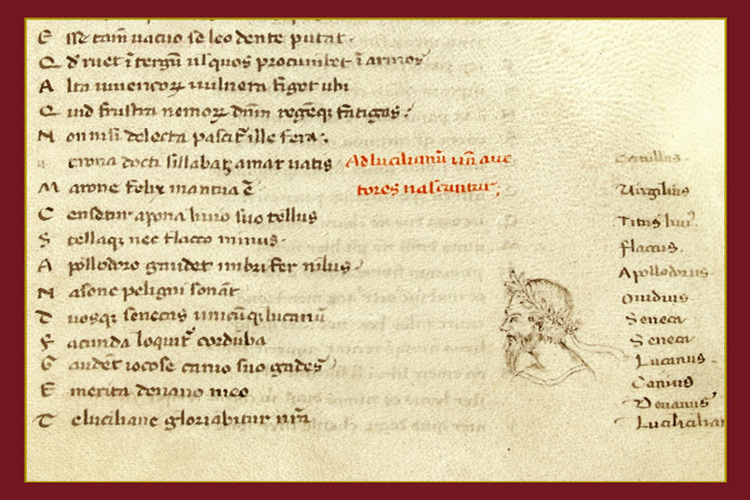 E sse tam̄ uacuo se leo dente putat.
Q d ruet ī tergū ul quos procumbet ī armos
A lta iuuencoꝝ uulnera figet ubi
Q uid frustra nemoꝝ dn̄m regēqꝫ fatigas:
N on nisi delecta pascit' ille fera:
u erona docti sillabaꝫ amat uatis Ad lucilianū un̄ auc
tores nascuntur;
M arone felix mantua ē
C ensetur apona liuio suo tellus
S tellaqꝫ nec flacco minus.
A pollodoro gaudet imbrifer nilus
N asone peligni sonāt
D uosqꝫ senecas unicūqꝫ lucanū
F acunda loquit' corduba
G audēt iocose canio suo gades
E merita deuano meo
T eluciliane gloriabitur nr̄a
Catullus.
Virgilius
Titus liui'
flaccus.
Apollodorus
Ouidius
Seneca
Seneca
Lucanus.
Canius
Deuanus
Lucilian